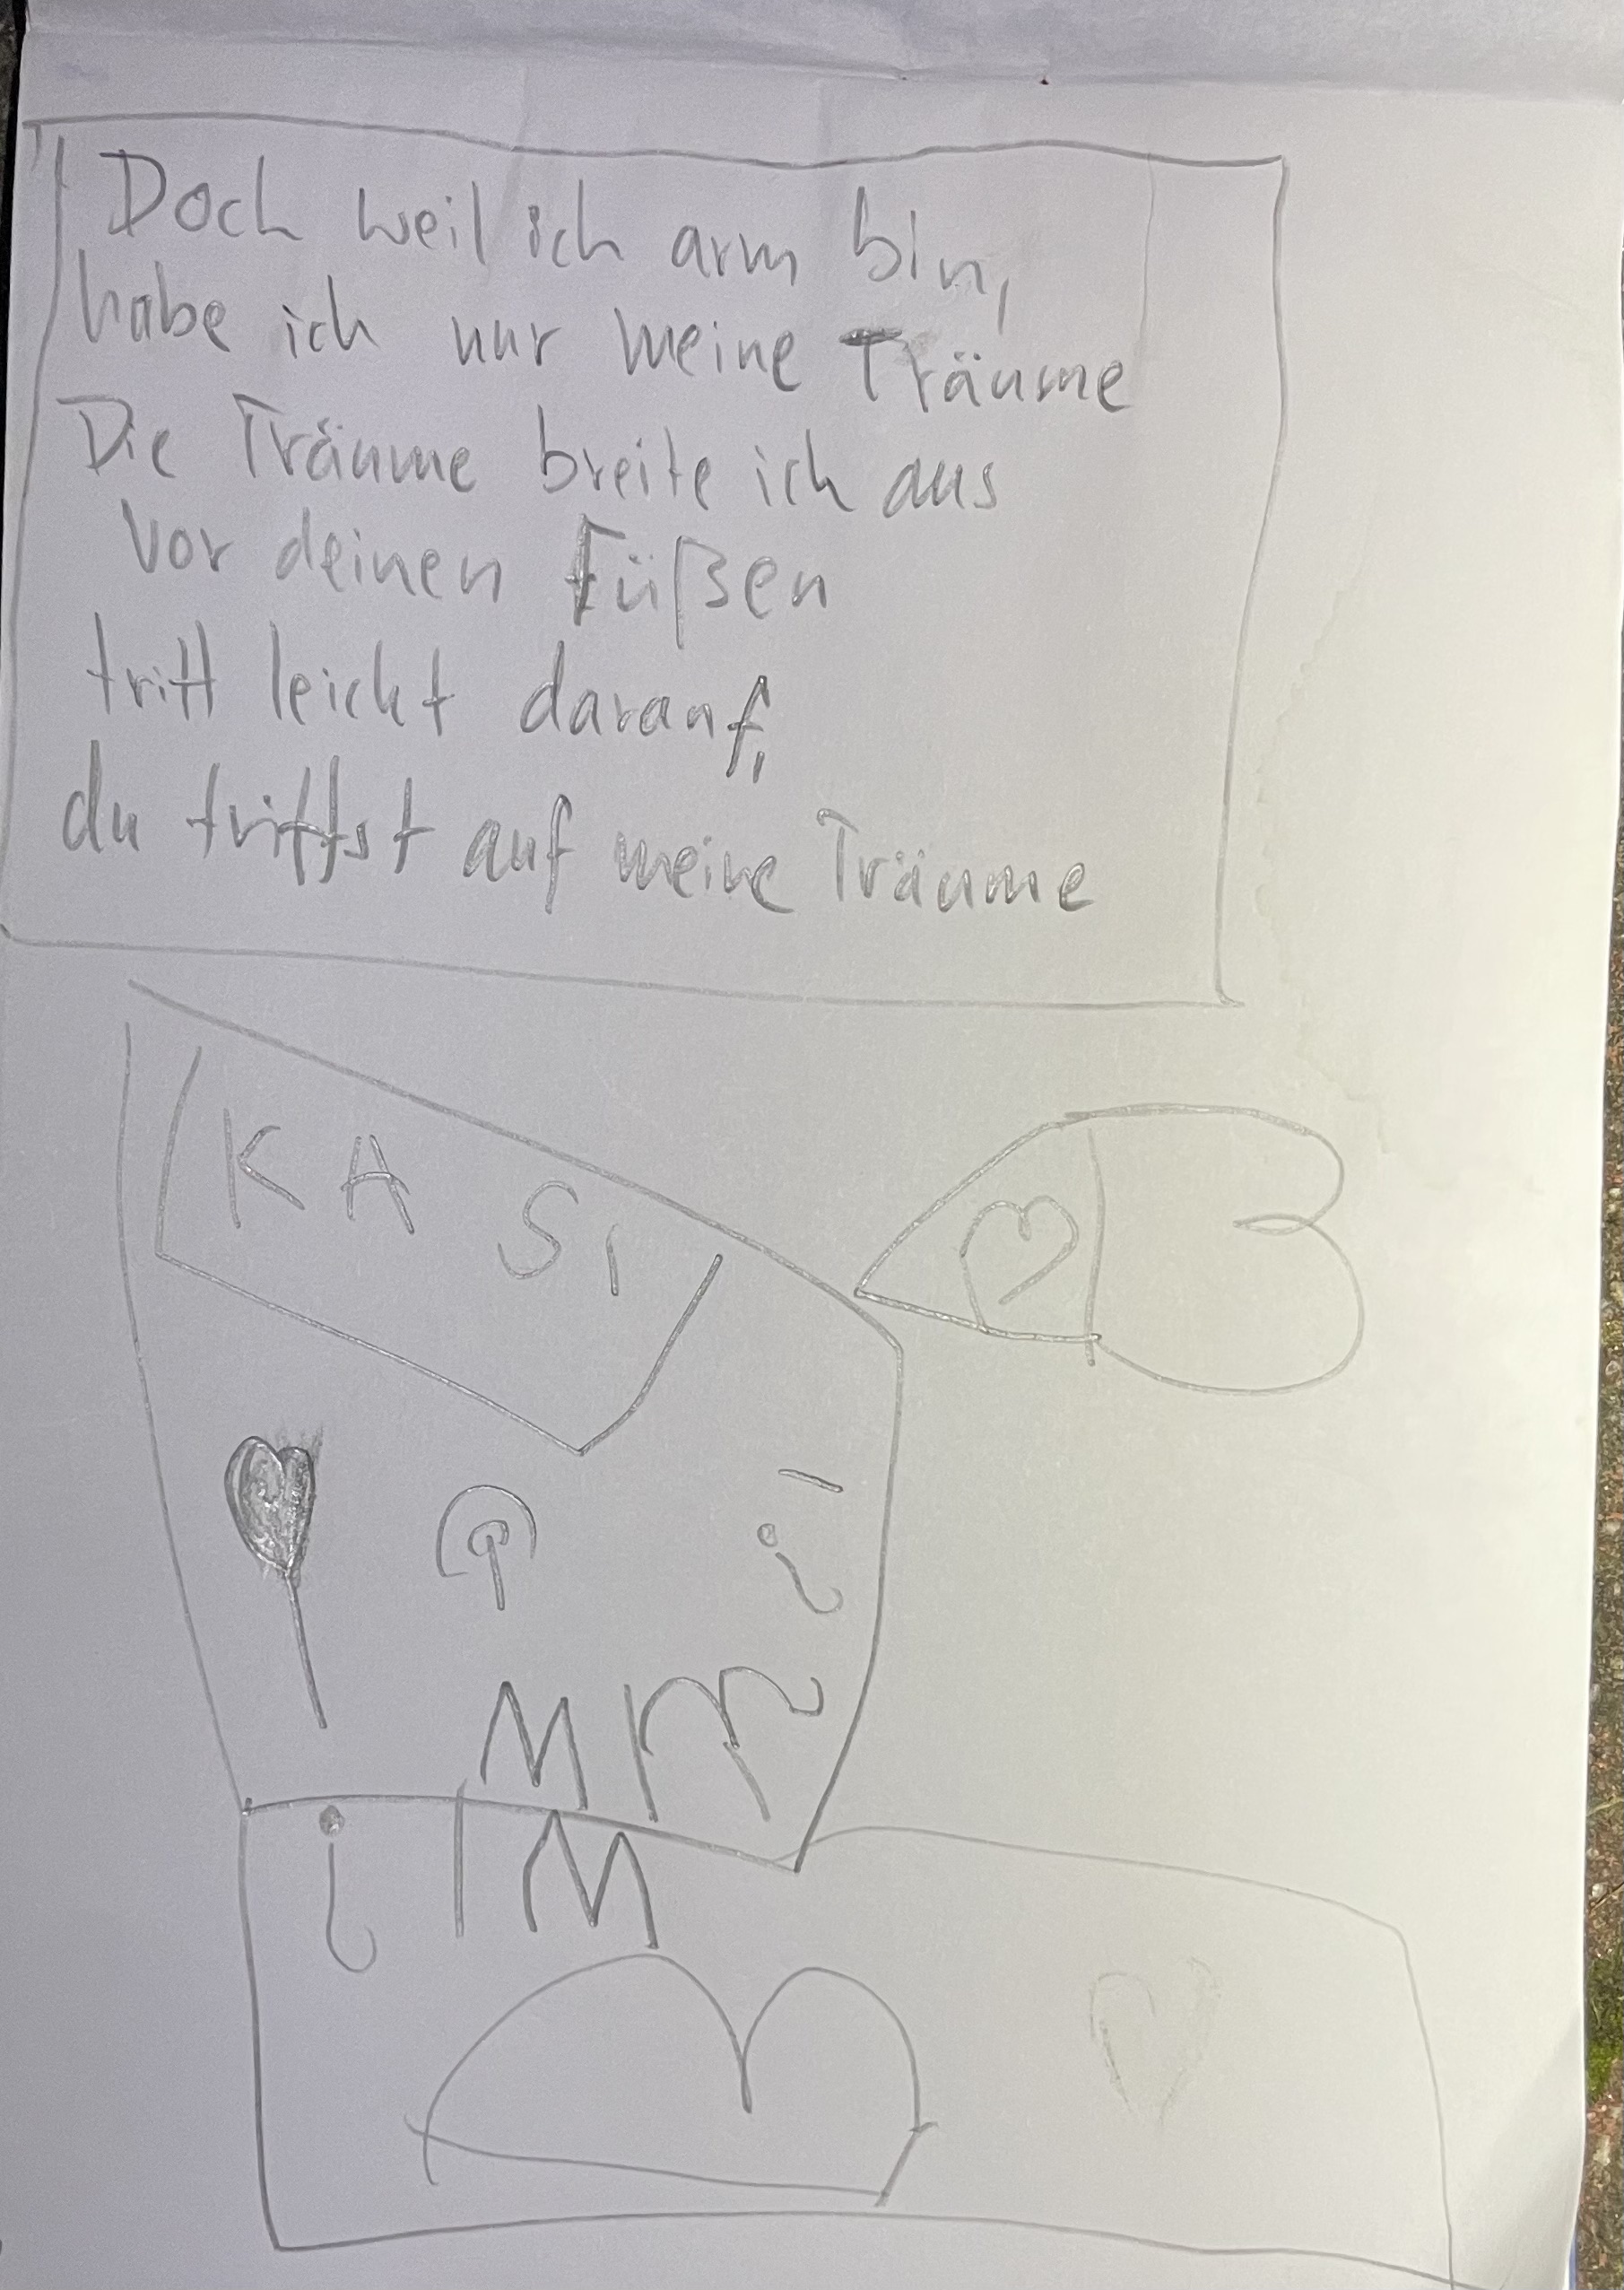 Doch weil ich arm bin,
habe ich nur meine Träume
Die Träume breite ich aus
vor deinen Füßen
tritt leicht darauf,
du trittst auf meine Träume
KASI